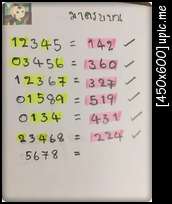 มาตรบวบน
12345 = 142 ✓
03456 = 360 ✓
12367 = 327 ✓
01589 = 519 ✓
0134 = 431 ✓
23468 = 224 ✓
5678 =
[450x600] upic.me